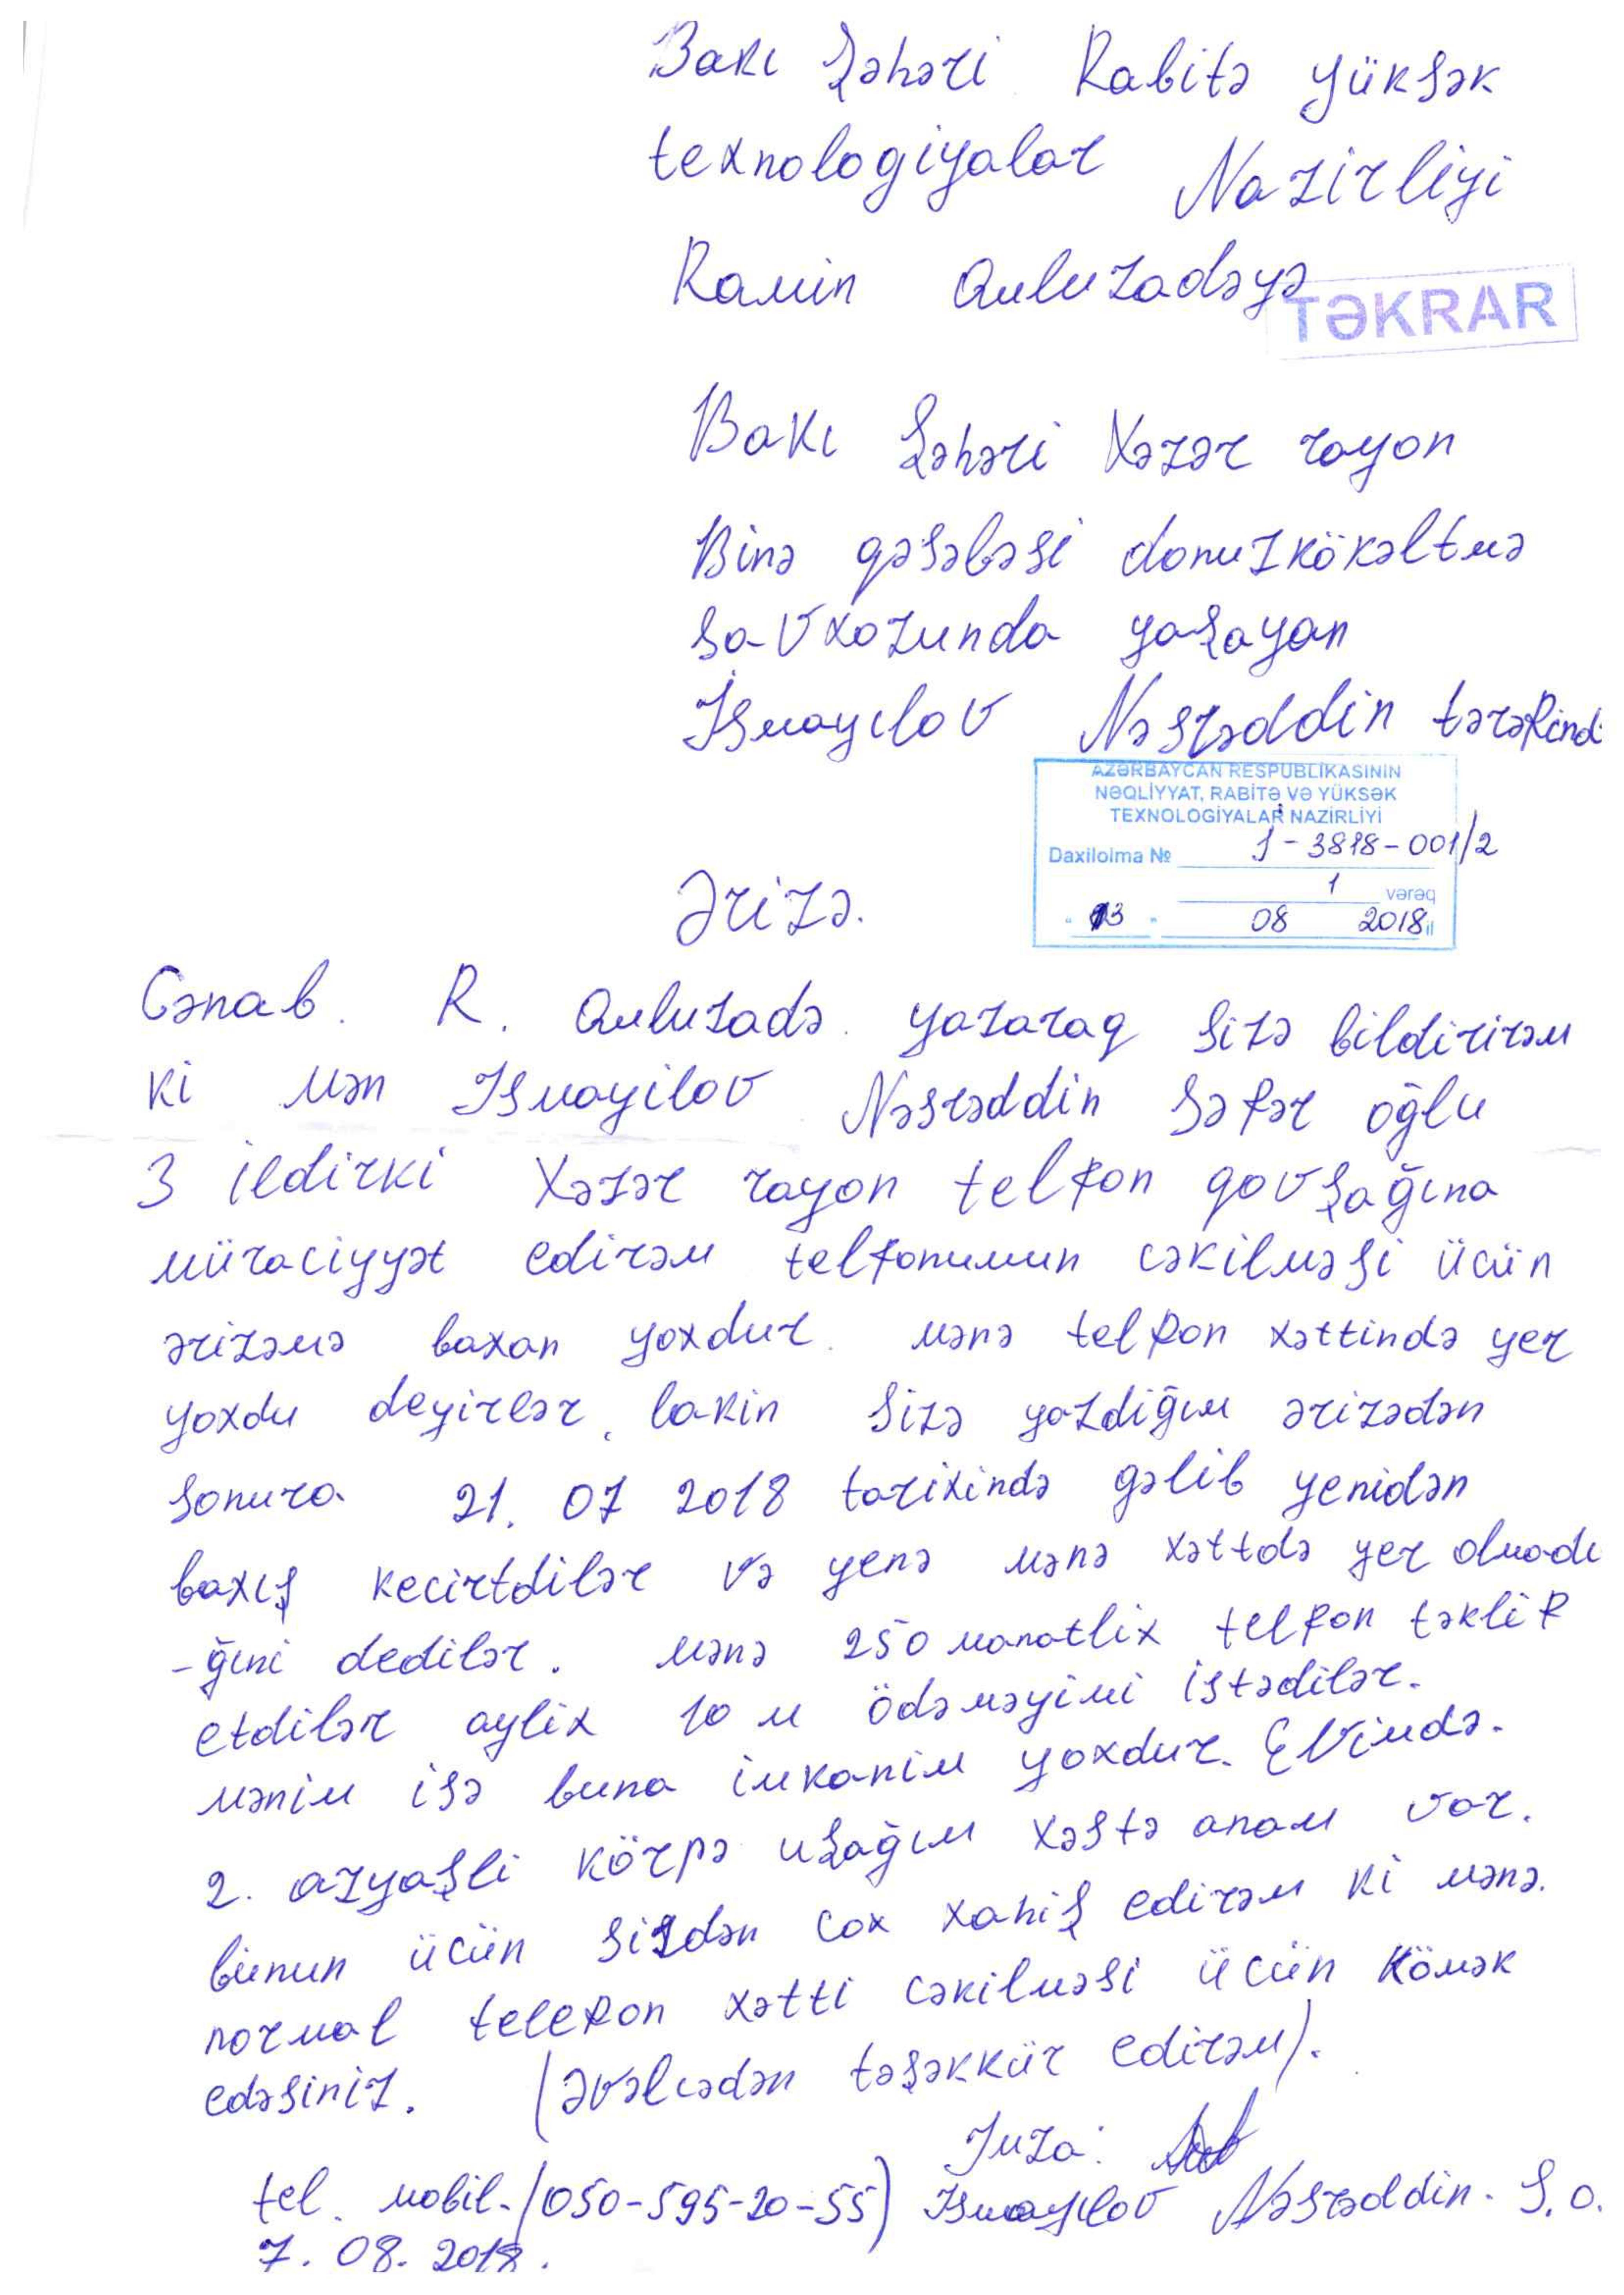 Bakı Şəhəri Rabitə yüksək
texnologiyalar Nazirliyi
Ramin Quluzadəyə
TƏKRAR
Bakı Şəhəri Xəzər rayon
Binə qəsəbəsi donuzkökəltmə
savxozunda yaşayan
İsmayılov Nəsrəddin tərəfind
AZƏRBAYCAN RESPUBLİKASININ
NƏQLİYYAT, RABİTƏ VƏ YÜKSƏK
TEXNOLOGİYALAR NAZİRLİYİ
Daxilolma № J-3818-001/2
1 vərəq
" 13 " 08 2018 il
Ərizə.
Cənab. R. Quluzadə. yazaraq sizə bildirirəm
ki mən Ismayilov Nəsrəddin Səfər oğlu
3 ildirki Xəzər rayon telfon qovşağına
müraciyyət edirəm telfonumun cəkilməsi ücün
ərizəmə baxan yoxdur. mənə telfon xəttində yer
yoxdu deyirlər, lakin sizə yazdiğım ərizədən
sonura 21. 07 2018 tarixində gəlib yenidən
baxış kecirtdilər və yenə mənə xəttdə yer olmadı
-ğıni dedilər. mənə 250 manatlix telfon təklif
etdilər aylix 10 m ödəməyimi istədilər.
mənim isə buna imkanim yoxdur. Evimdə.
2. azyaşli körpə uşağım xəstə anam var.
bunun ücün sizdən cox xahiş edirəm ki mənə.
normal telefon xətti cəkilməsi ücün kömək
edəsiniz. (Əvəlcədən təşəkkür edirəm).
Imza:
tel. mobil-(050-595-20-55) Ismayılov Nəsrəddin. S.o.
7. 08. 2018.